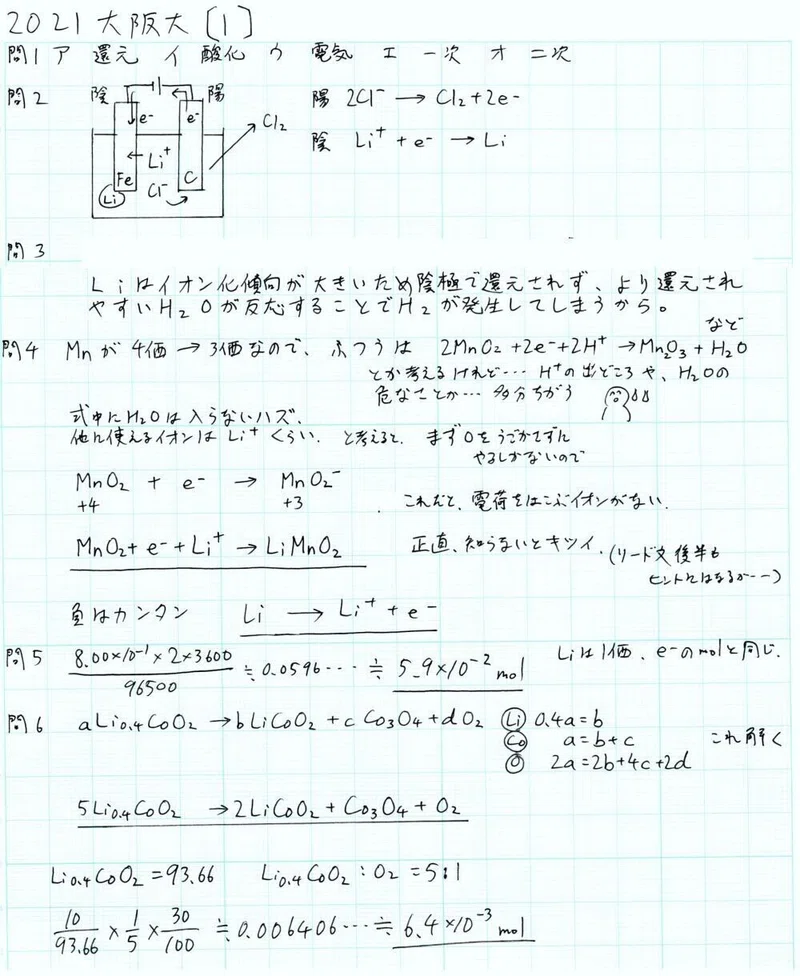 2021 大阪大〔1〕
問1 ア 還元 イ 酸化 ウ 電気 エ 一次 オ 二次
問2 陰 陽 陽 2Cl⁻ → Cl₂+2e⁻
e⁻ e⁻ Cl₂
陰 Li⁺ + e⁻ → Li
Li⁺
Fe C
Li Cl⁻
問3
Liはイオン化傾向が大きいため陰極で還元されず、より還元され
やすいH₂Oが反応することでH₂が発生してしまうから。
問4 Mnが4価→3価なので、ふつうは 2MnO₂+2e⁻+2H⁺→Mn₂O₃+H₂O など
とか考えるけれど… H⁺の出どころや、H₂Oの
危なさとか… 多分ちがう
式中にH₂Oは入らないハズ、
他に使えるイオンはLi⁺くらい、と考えると、まずOをうごかさずに
やるしかないので
MnO₂ + e⁻ → MnO₂⁻
+4 +3 これだと、電荷をはこぶイオンがない、
MnO₂+e⁻+Li⁺→LiMnO₂ 正直、知らないとキツイ、(リード文後半も
ヒントにはなるが…)
負はカンタン Li → Li⁺ + e⁻
問5 8.00×10⁻¹×2×3600/96500 ≒ 0.0596… ≒ 5.9×10⁻² mol Liは1価、e⁻のmolと同じ.
問6 aLi₀.₄CoO₂ →bLiCoO₂ + cCo₃O₄+dO₂ Li 0.4a=b
Co a=b+c これ解く
O 2a=2b+4c+2d
5Li₀.₄CoO₂ →2LiCoO₂+Co₃O₄+O₂
Li₀.₄CoO₂=93.66 Li₀.₄CoO₂:O₂=5:1
10/93.66 × 1/5 × 30/100 ≒ 0.006406… ≒ 6.4×10⁻³ mol